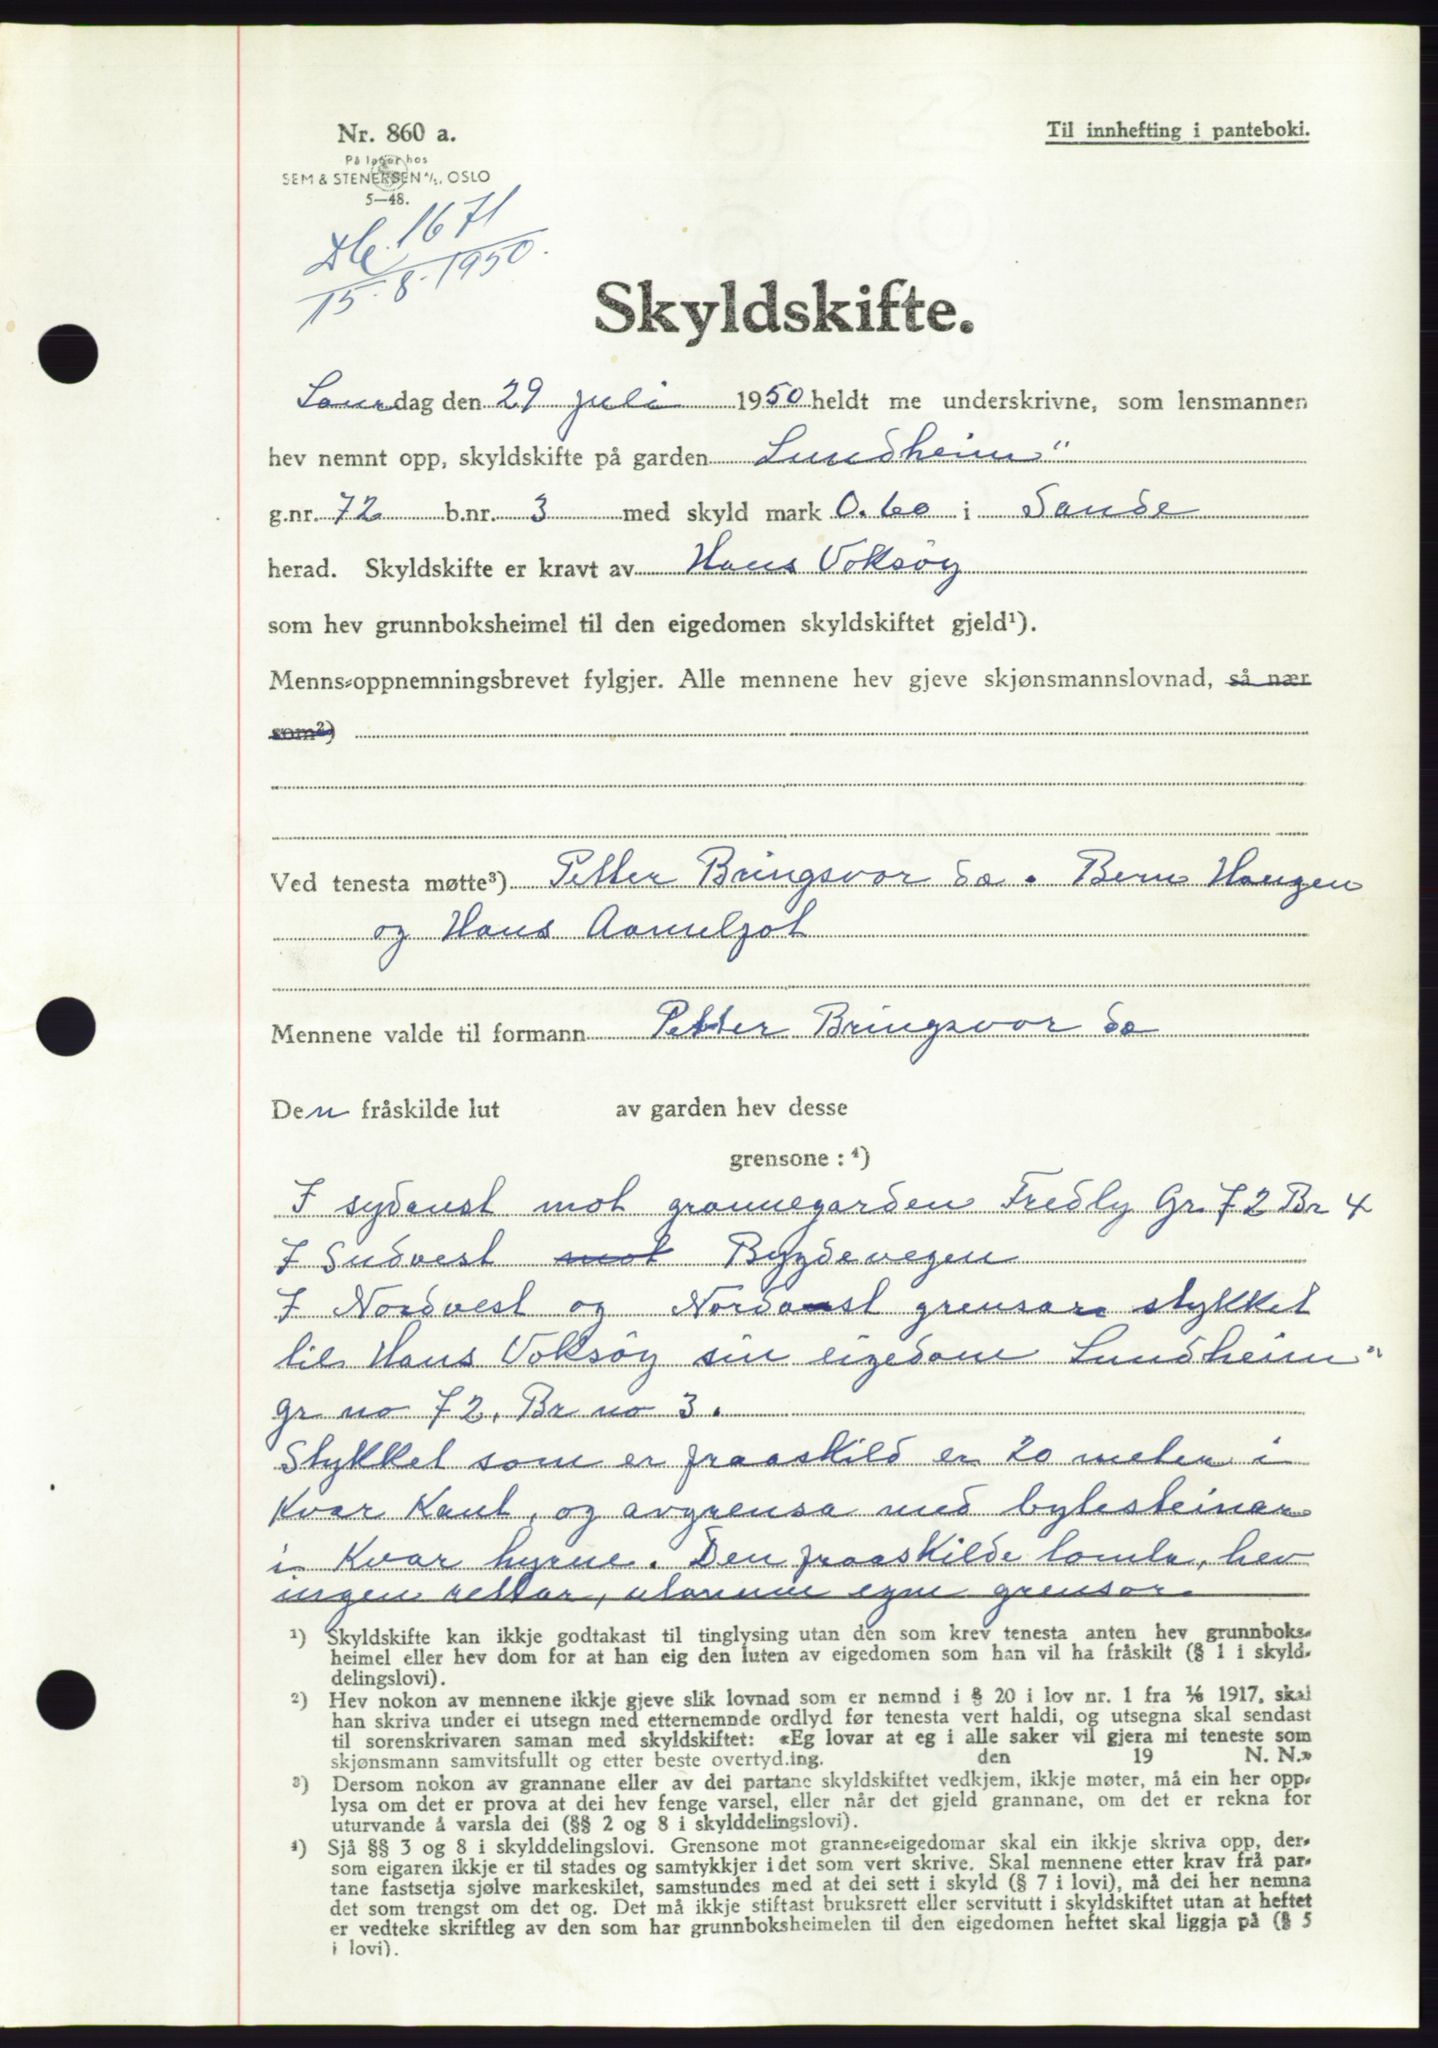 Nr. 860 a.
Til innhefting i panteboki.
På lager hos
SEM & STENERSEN A/S, OSLO
5—48.
1671
15-8-1950.
Skyldskifte.
Laurdag den 29 juli 1950 heldt me underskrivne, som lensmannen
hev nemnt opp, skyldskifte på garden Lundheim"
g.nr. 72 b.nr. 3 med skyld mark 0.60 i Sande
herad. Skyldskifte er kravt av Hans Voksøy
som hev grunnboksheimel til den eigedomen skyldskiftet gjeld¹).
Menns-oppnemningsbrevet fylgjer. Alle mennene hev gjeve skjønsmannslovnad, så nær
som²)
Ved tenesta møtte³) Petter Bringsvor do. Bern Haugen
og Hans Aamelfot
Mennene valde til formann Petter Bringsvor do
Den fråskilde lut av garden hev desse
grensone : ⁴)
I sydaust mot grannegarden Fredly Gr. 72 Br 4
I Sudvest mot Bygdevegen
I Nordvest og Nordaust grensar stykket
til Hans Voksøy sin eigedom Lundheim"
gr no 72. Br no 3.
Stykket som er fraaskild er 20 meter i
kvar kant, og avgrensa med bytesteinar
i kvar hyrne. Den fraaskilde tomta, hev
ingen rettar, utanum egne grensor.
¹) Skyldskifte kan ikkje godtakast til tinglysing utan den som krev tenesta anten hev grunnboks-
heimel eller hev dom for at han eig den luten av eigedomen som han vil ha fråskilt (§ 1 i skyld
delingslovi).
²) Hev nokon av mennene ikkje gjeve slik lovnad som er nemnd i § 20 i lov nr. 1 fra ⅙ 1917, skal
han skriva under ei utsegn med etternemnde ordlyd før tenesta vert haldi, og utsegna skal sendast
til sorenskrivaren saman med skyldskiftet: «Eg lovar at eg i alle saker vil gjera mi teneste som
skjønsmann samvitsfullt og etter beste overtyding. den 19 N. N.»
³) Dersom nokon av grannane eller av dei partane skyldskiftet vedkjem, ikkje møter, må ein her opp-
lysa om det er prova at dei hev fenge varsel, eller når det gjeld grannane, om det er rekna for
uturvande å varsla dei (§§ 2 og 8 i skylddelingslovi).
⁴) Sjå §§ 3 og 8 i skylddelingslovi. Grensone mot granne-eigedomar skal ein ikkje skriva opp, der-
som eigaren ikkje er til stades og samtykkjer i det som vert skrive. Skal mennene etter krav frå par-
tane fastsetja sjølve markeskilet, samstundes med at dei sett i skyld (§ 7 i lovi), må dei her nemna
det som trengst om det og. Det må ikkje stiftast bruksrett eller servitutt i skyldskiftet utan at heftet
er vedteke skriftleg av den som har grunnboksheimelen til den eigedomen heftet skal liggja på (§ 5
i lovi).